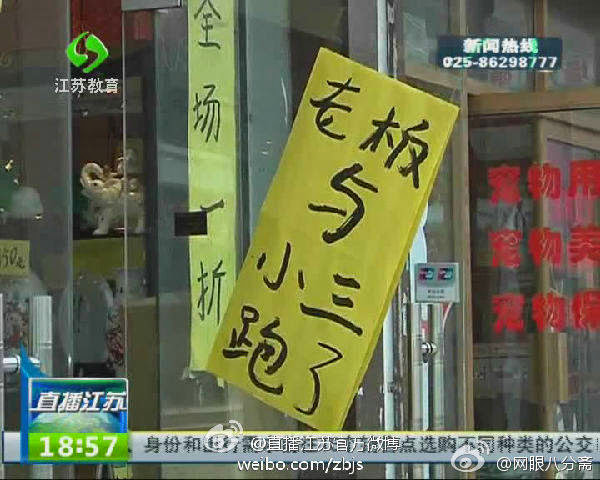 江苏教育
新闻热线
025-86298777
全场一折
老板
与
小三
跑了
宠物用
宠物美
宠物保
直播江苏
18:57
@直播江苏官方微博
点选购不同种类的公交
weibo.com/zbjs
@网眼八分斋